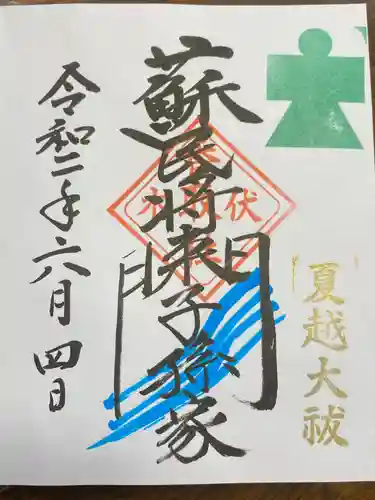 夏越大祓
蘇民将来子孫家
門
令和二年六月四日